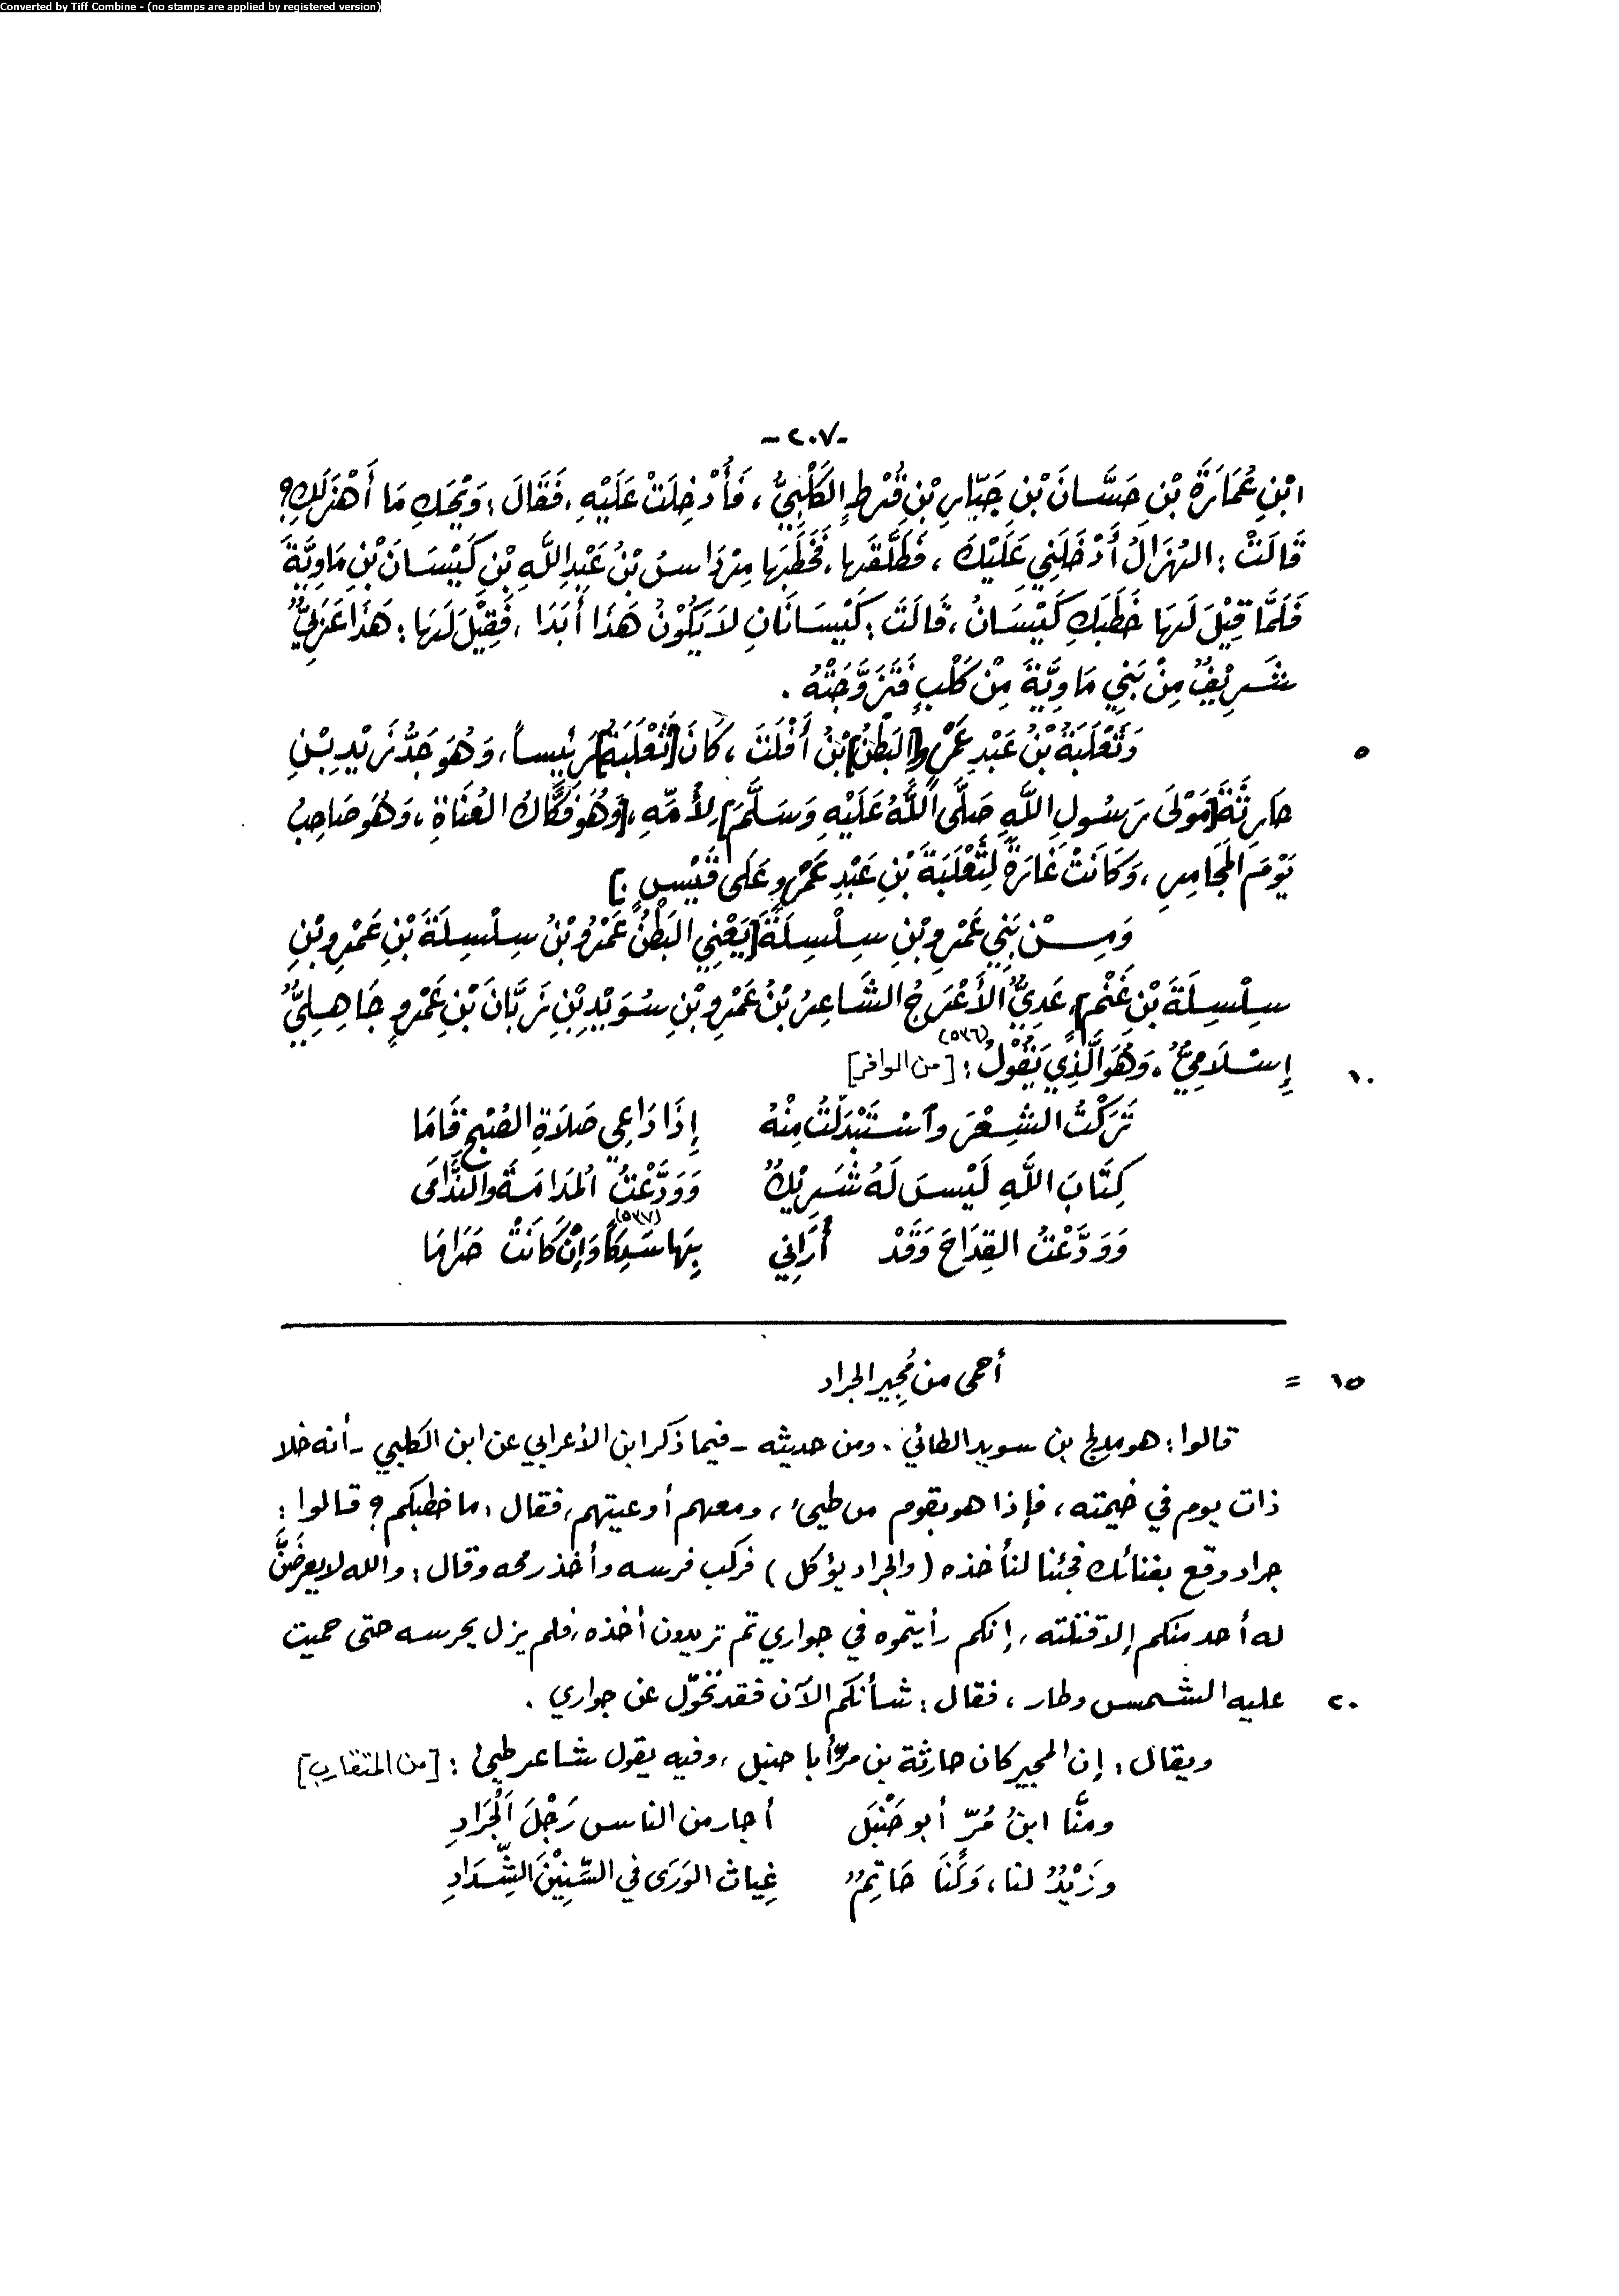 Converted by Tiff Combine - (no stamps are applied by registered version)
-٢٠٧-
ابْنِ عُمَارَةَ بْنِ حَسَّانَ بْنِ جَبَّارِ بْنِ قُرْطٍ الكَلْبِيُّ ، فَأُدْخِلَتْ عَلَيْهِ ، فَقَالَ : وَيْحَكِ مَا أَهْزَلَكِ؟
قَالَتْ : الهُزَالُ أَدْخَلَنِي عَلَيْكَ ، فَطَلَّقَها ، فَخَطَبَها مِرْدَاسُ بْنُ عَبْدِ اللَّهِ بْنِ كَيْسَانَ بْنِ مَاوِيَّةَ
فَلَمَّا قِيْلَ لَهَا خَطَبَكِ كَيْسَانُ ، قَالَتْ : كَيْسَانَانِ لاَ يَكُوْنُ هَذَا أَبَدَا ، فَقِيْلَ لَهَا : هَذَا عَرَبِيٌّ
شَرِيْفٌ مِنْ بَنِي مَاوِيَّةَ مِنْ كَلْبٍ فَتَزَوَّجَتْهُ .
وَثَعْلَبَةُ بْنُ عَبْدِ عَمْرٍو [البَطْنُ] بْنُ أَفْلَتَ ، كَانَ [ثَعْلَبَةُ] رَئِيساً ، وَهُوَ جَدُّ زَيْدِ بْنِ
٥
حَارِثَةَ [مَوْلَى رَسُولِ اللَّهِ صَلَّى اللَّهُ عَلَيْهِ وَسَلَّمَ] لِأُمِّهِ ، [وَهُوَ فَكَّاكُ العُنَاةِ ، وَهُوَ صَاحِبُ
يَوْمَ المَجَامِرِ ، وَكَانَتْ غَارَةً لِثَعْلَبَةَ بْنِ عَبْدِ عَمْرٍو عَلَى قَيْسٍ .]
وَمِنْ بَنِي عَمْرِو بْنِ سِلْسِلَةَ [يَعْنِي البَطْنَ عَمْرُو بْنُ سِلْسِلَةَ بْنِ عَمْرِو بْنِ
سِلْسِلَةَ بْنِ غَنْمٍ] ، عَدِيٌّ الأَعْرَجُ الشَّاعِرُ بْنُ عَمْرِو بْنِ سُوَيْدِ بْنِ زَبَّانَ بْنِ عَمْرٍو جَاهِلِيٌّ
إِسْلاَمِيٌّ ، وَهُوَ الَّذِي يَقُوْلُ : (٥٣٦) [من الوافر]
١٠
تَرَكْتُ الشِّعْرَ وَاسْتَبْدَلْتُ مِنْهُ إِذَا دَاعِي صَلاَةِ الصُّبْحِ قَامَا
كِتَابَ اللَّهِ لَيْسَ لَهُ شَرِيْكٌ وَوَدَّعْتُ المُدَامَةَ وَالنَّدَامَى
وَوَدَّعْتُ القِدَاحَ وَقَدْ أَرَانِي بِهَا سَدِكَاً (٥٣٧) وَإِنْ كَانَتْ حَرَامَا
١٥ = أحمى من مُجِير الجراد
قالوا : هو مدلج بن سويد الطائي . ومن حديثه - فيما ذكر ابن الأعرابي عن ابن الكلبي - أنه خلا
ذات يوم في خيمته ، فإذا هو بقوم من طيئ ، ومعهم أوعيتهم ، فقال : ما خطبكم ؟ قالوا :
جراد وقع بفنائك فجئنا لنأخذه (والجراد يؤكل) فركب فرسه وأخذ رمحه وقال : والله لا يعرضَنَّ
له أحد منكم إلا قتلته ، إنكم رأيتموه في جواري ثم تريدون أخذه ، فلم يزل يحرسه حتى حميت
عليه الشمس وطار ، فقال : شأنكم الآن فقد تحوّل عن جواري .
٢٠
ويقال : إن المجير كان حارثة بن مرّ أبا حنبل ، وفيه يقول شاعر طيئ : [من المتقارب]
ومنَّا ابنُ مُرّ أبو حَنْبَل أجار من الناس رَجْلَ الجَرَادِ
وزَيْدٌ لنا ، وَلَنَا حَاتِمٌ غِياث الوَرَى في السِّنِيْنَ الشِّدَادِ